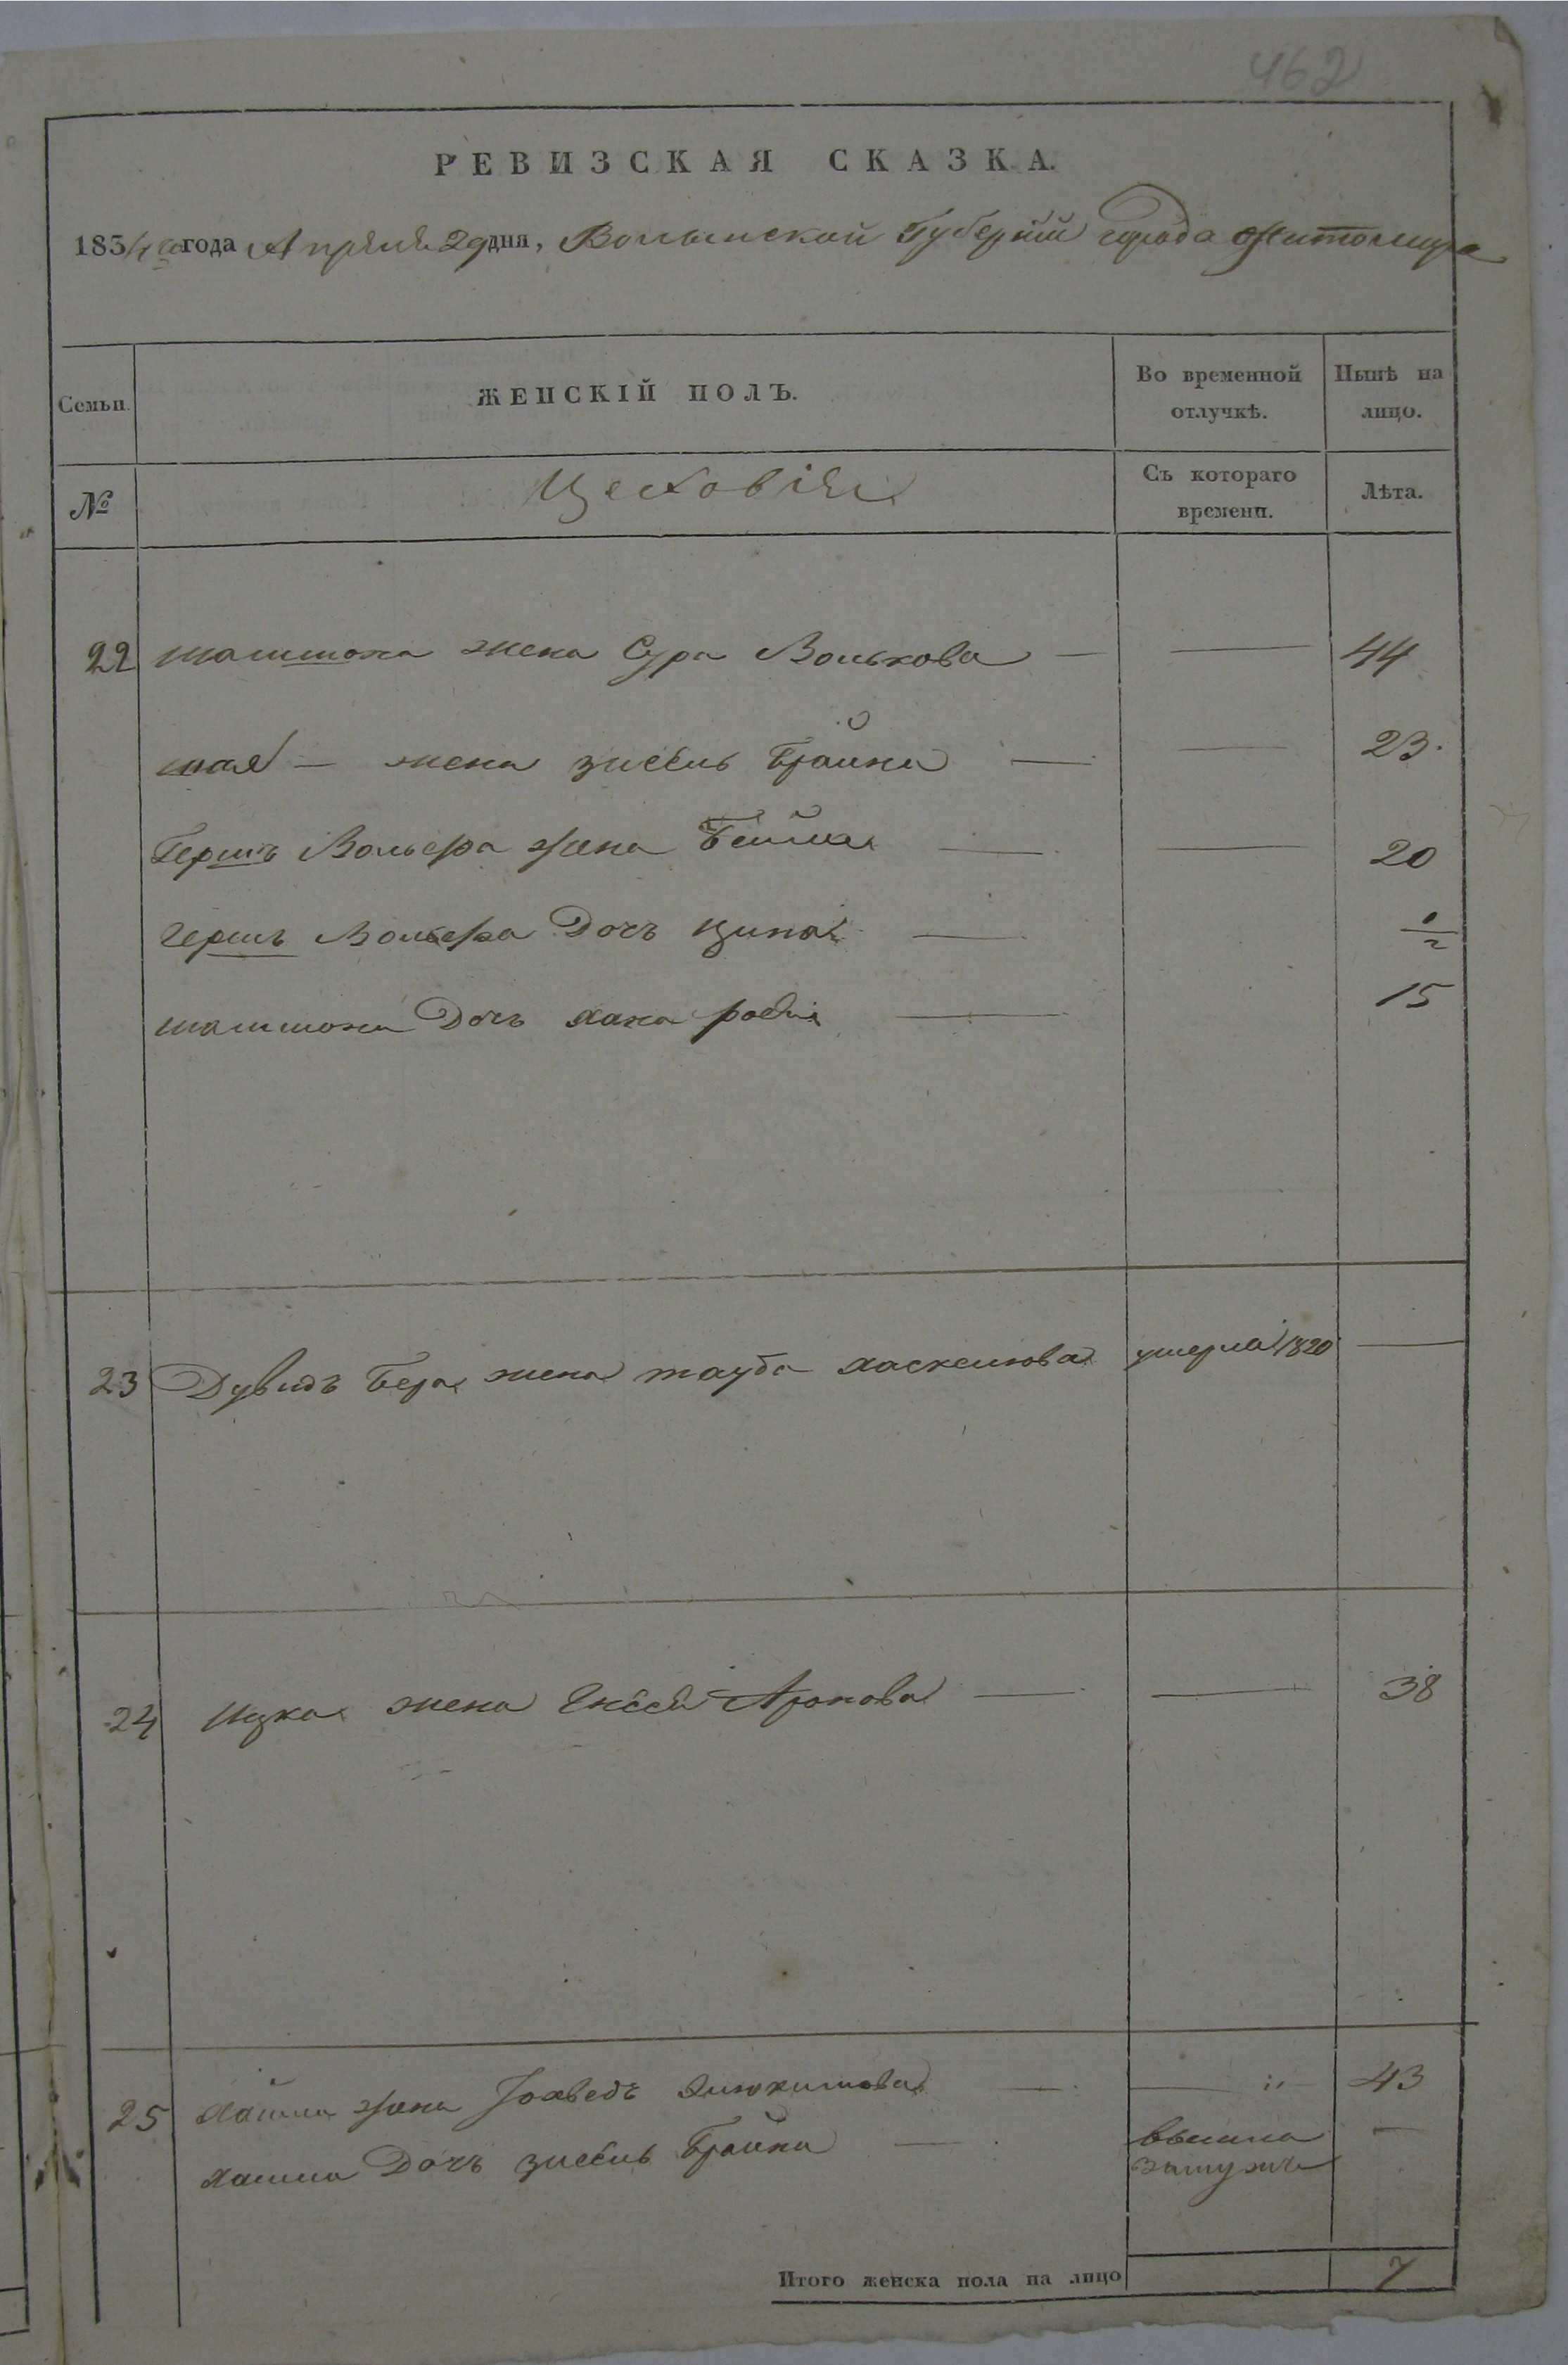 462
РЕВИЗСКАЯ СКАЗКА.
1854го года Апреля 29 дня, Волынской Губернии города Житомира
Семьи. ЖЕНСКІЙ ПОЛЪ. Во временной отлучкѣ. Нынѣ на лицо.
№ Цеховіе Съ котораго времени. Лѣта.
22 Жена Сура Волькова — — 44
жена зисель Брайна — — 23.
Гершъ Вольфа жена Бейла — — 20
Гершъ Вольфа Дочъ ципа —
Дочъ хана — 15
23 Дувидъ Бера жена тауба хаскелюва умерла 1820 —
24 Ицка жена Аронова — — 38
25 хаима жена Іохведъ — — „ 43
хаима Дочъ зисель Брайна — вышла —
замужъ
Итого женска пола на лицо 7